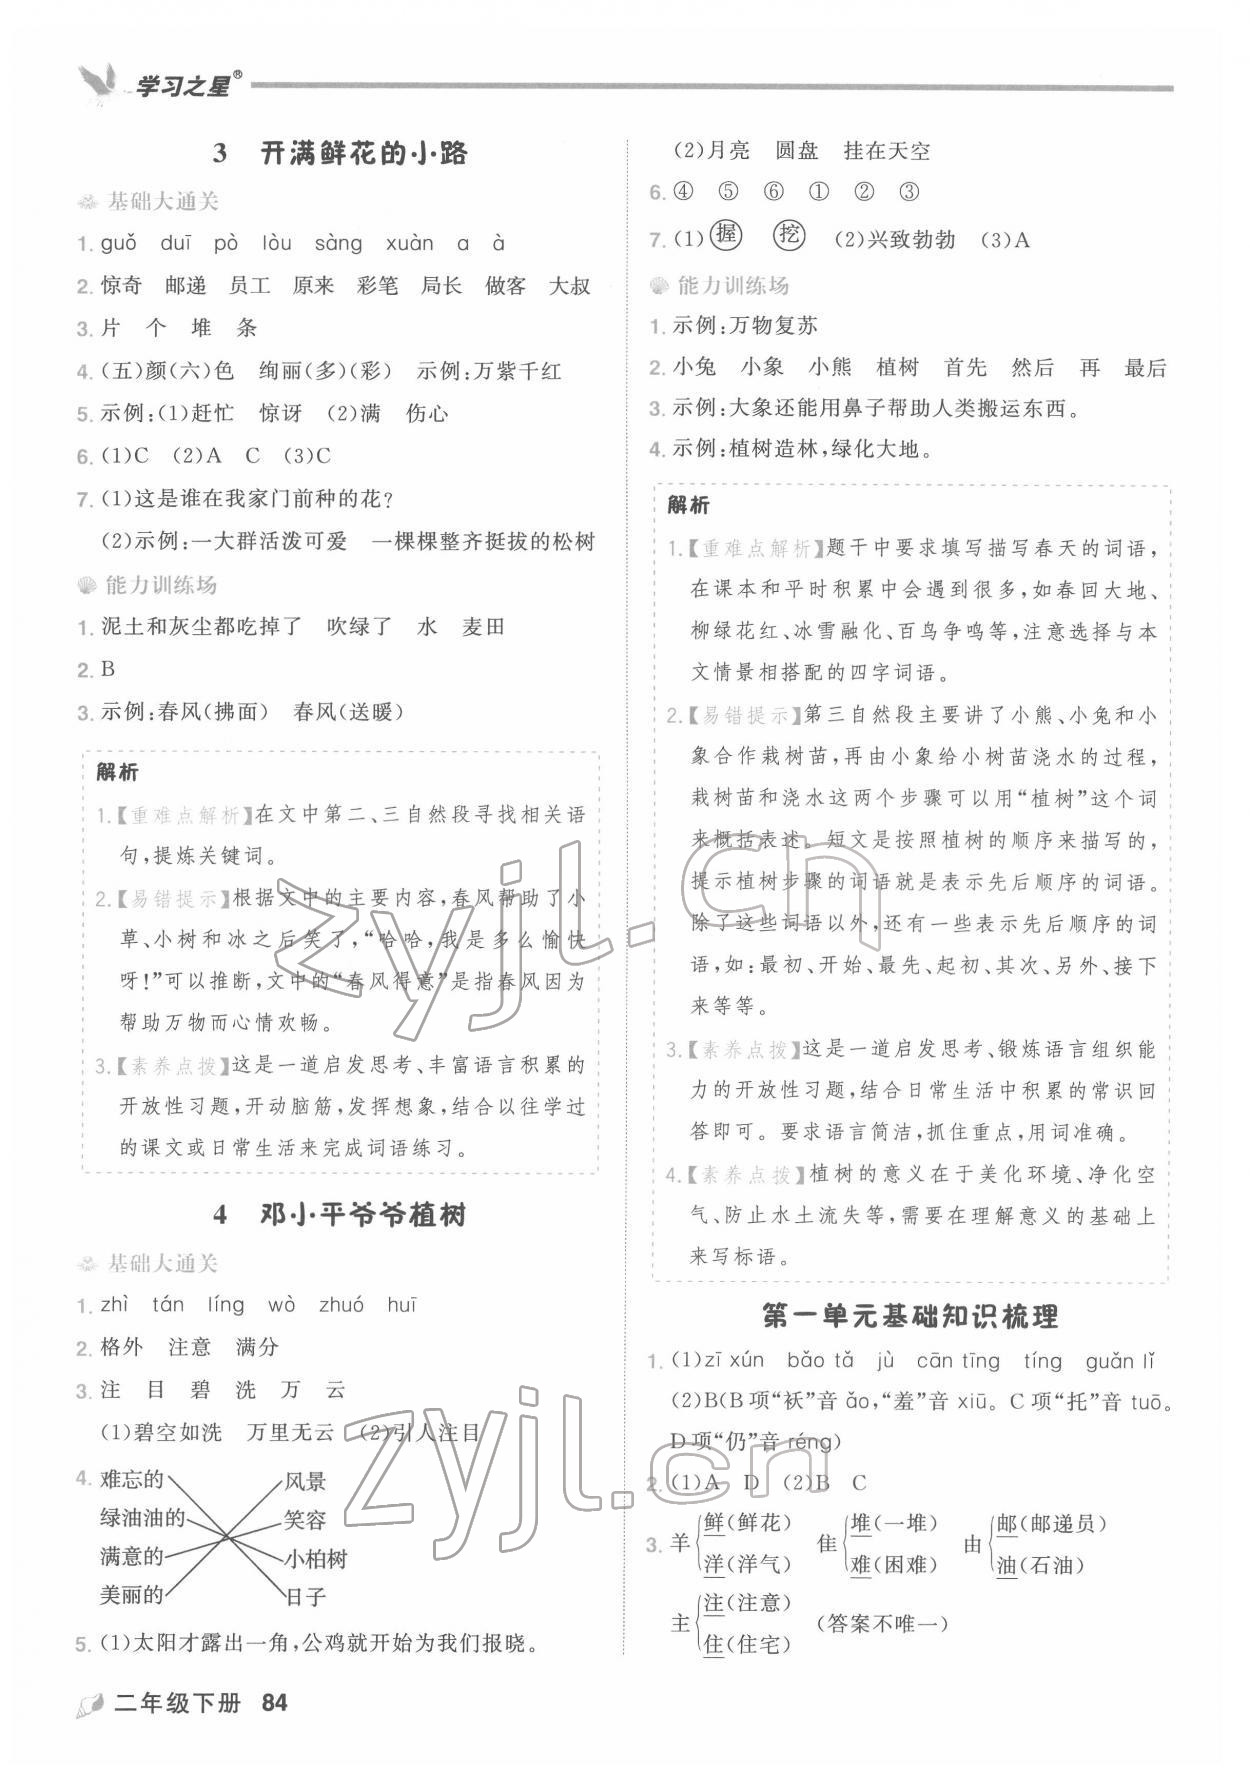 学习之星®
3 开满鲜花的小路
基础大通关
1. guǒ duī pò lòu sàng xuàn a à
2. 惊奇 邮递 员工 原来 彩笔 局长 做客 大叔
3. 片 个 堆 条
4. (五)颜(六)色 绚丽(多)(彩) 示例:万紫千红
5. 示例:(1)赶忙 惊讶 (2)满 伤心
6. (1)C (2)A C (3)C
7. (1)这是谁在我家门前种的花?
(2)示例:一大群活泼可爱 一棵棵整齐挺拔的松树
能力训练场
1. 泥土和灰尘都吃掉了 吹绿了 水 麦田
2. B
3. 示例:春风(拂面) 春风(送暖)
解析
1.【重难点解析】在文中第二、三自然段寻找相关语
句,提炼关键词。
2.【易错提示】根据文中的主要内容,春风帮助了小
草、小树和冰之后笑了,“哈哈,我是多么愉快
呀!”可以推断,文中的“春风得意”是指春风因为
帮助万物而心情欢畅。
3.【素养点拨】这是一道启发思考、丰富语言积累的
开放性习题,开动脑筋,发挥想象,结合以往学过
的课文或日常生活来完成词语练习。
4 邓小平爷爷植树
基础大通关
1. zhì tán líng wò zhuó huī
2. 格外 注意 满分
3. 注 目 碧 洗 万 云
(1)碧空如洗 万里无云 (2)引人注目
4. 难忘的 风景
绿油油的 笑容
满意的 小柏树
美丽的 日子
5. (1)太阳才露出一角,公鸡就开始为我们报晓。
二年级下册 84
(2)月亮 圆盘 挂在天空
6. ④ ⑤ ⑥ ① ② ③
7. (1)握 挖 (2)兴致勃勃 (3)A
能力训练场
1. 示例:万物复苏
2. 小兔 小象 小熊 植树 首先 然后 再 最后
3. 示例:大象还能用鼻子帮助人类搬运东西。
4. 示例:植树造林,绿化大地。
解析
1.【重难点解析】题干中要求填写描写春天的词语,
在课本和平时积累中会遇到很多,如春回大地、
柳绿花红、冰雪融化、百鸟争鸣等,注意选择与本
文情景相搭配的四字词语。
2.【易错提示】第三自然段主要讲了小熊、小兔和小
象合作栽树苗,再由小象给小树苗浇水的过程,
栽树苗和浇水这两个步骤可以用“植树”这个词
来概括表述。短文是按照植树的顺序来描写的,
提示植树步骤的词语就是表示先后顺序的词语。
除了这些词语以外,还有一些表示先后顺序的词
语,如:最初、开始、最先、起初、其次、另外、接下
来等等。
3.【素养点拨】这是一道启发思考、锻炼语言组织能
力的开放性习题,结合日常生活中积累的常识回
答即可。要求语言简洁,抓住重点,用词准确。
4.【素养点拨】植树的意义在于美化环境、净化空
气、防止水土流失等,需要在理解意义的基础上
来写标语。
第一单元基础知识梳理
1. (1)zī xún bǎo tǎ jù cān tīng tíng guǎn lǐ
(2)B(B项“袄”音 ǎo,“羞”音 xiū。C项“托”音 tuō。
D项“仍”音 réng)
2. (1)A D (2)B C
3. 羊 鲜(鲜花) 洋(洋气) 隹 堆(一堆) 难(困难) 由 邮(邮递员) 油(石油)
主 注(注意) 住(住宅) (答案不唯一)
zyjl.cn
zyjl.cn